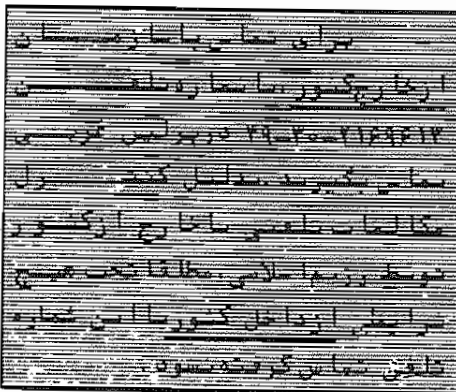 برای تماس با سازمـــــان
از خارج کشور، با شماره تلفـــــن
۲۱۶۹۶۱۳-۳۰-۴۹ در برلین غربـــی
تماس بگیرید. بدلیل کنتــــرول
مکالمات تلفنی با خارج از کشـــور
توسط رژیم اسلامی، مطلقا تحت هیـــچ
شرایطی از داخل کشور با این شماره
تلفن تماس گرفته نشود.